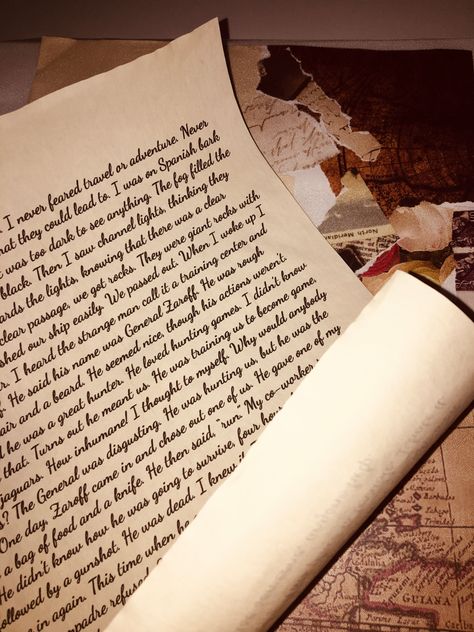 I never feared travel or adventure. Never
that they could lead to. I was on Spanish bark
was too dark to see anything. The fog filled the
black. Then I saw channel lights, thinking they
the lights, knowing that there was a clear
clear passage, we got rocks. They were giant rocks with
our ship easily. We passed out. When I woke up I
I heard the strange man call it a training center and
He said his name was General Zaroff. He was rough
hair and a beard. He seemed nice, though his actions weren't.
he was a great hunter. He loved hunting games. I didn't know
that. Turns out he meant us. He was training us to become game,
jaguars. How inhumane! I thought to myself. Why would anybody
? The General was disgusting. He was hunting us, but he was the
One day, Zaroff came in and chose out one of us. He gave one of my
a bag of food and a knife. He then said, "run." My co-worker
He didn't know how he was going to survive, four
followed by a gunshot. He was dead. I knew
in again. This time when he
refused
North Meridian
GUIANA